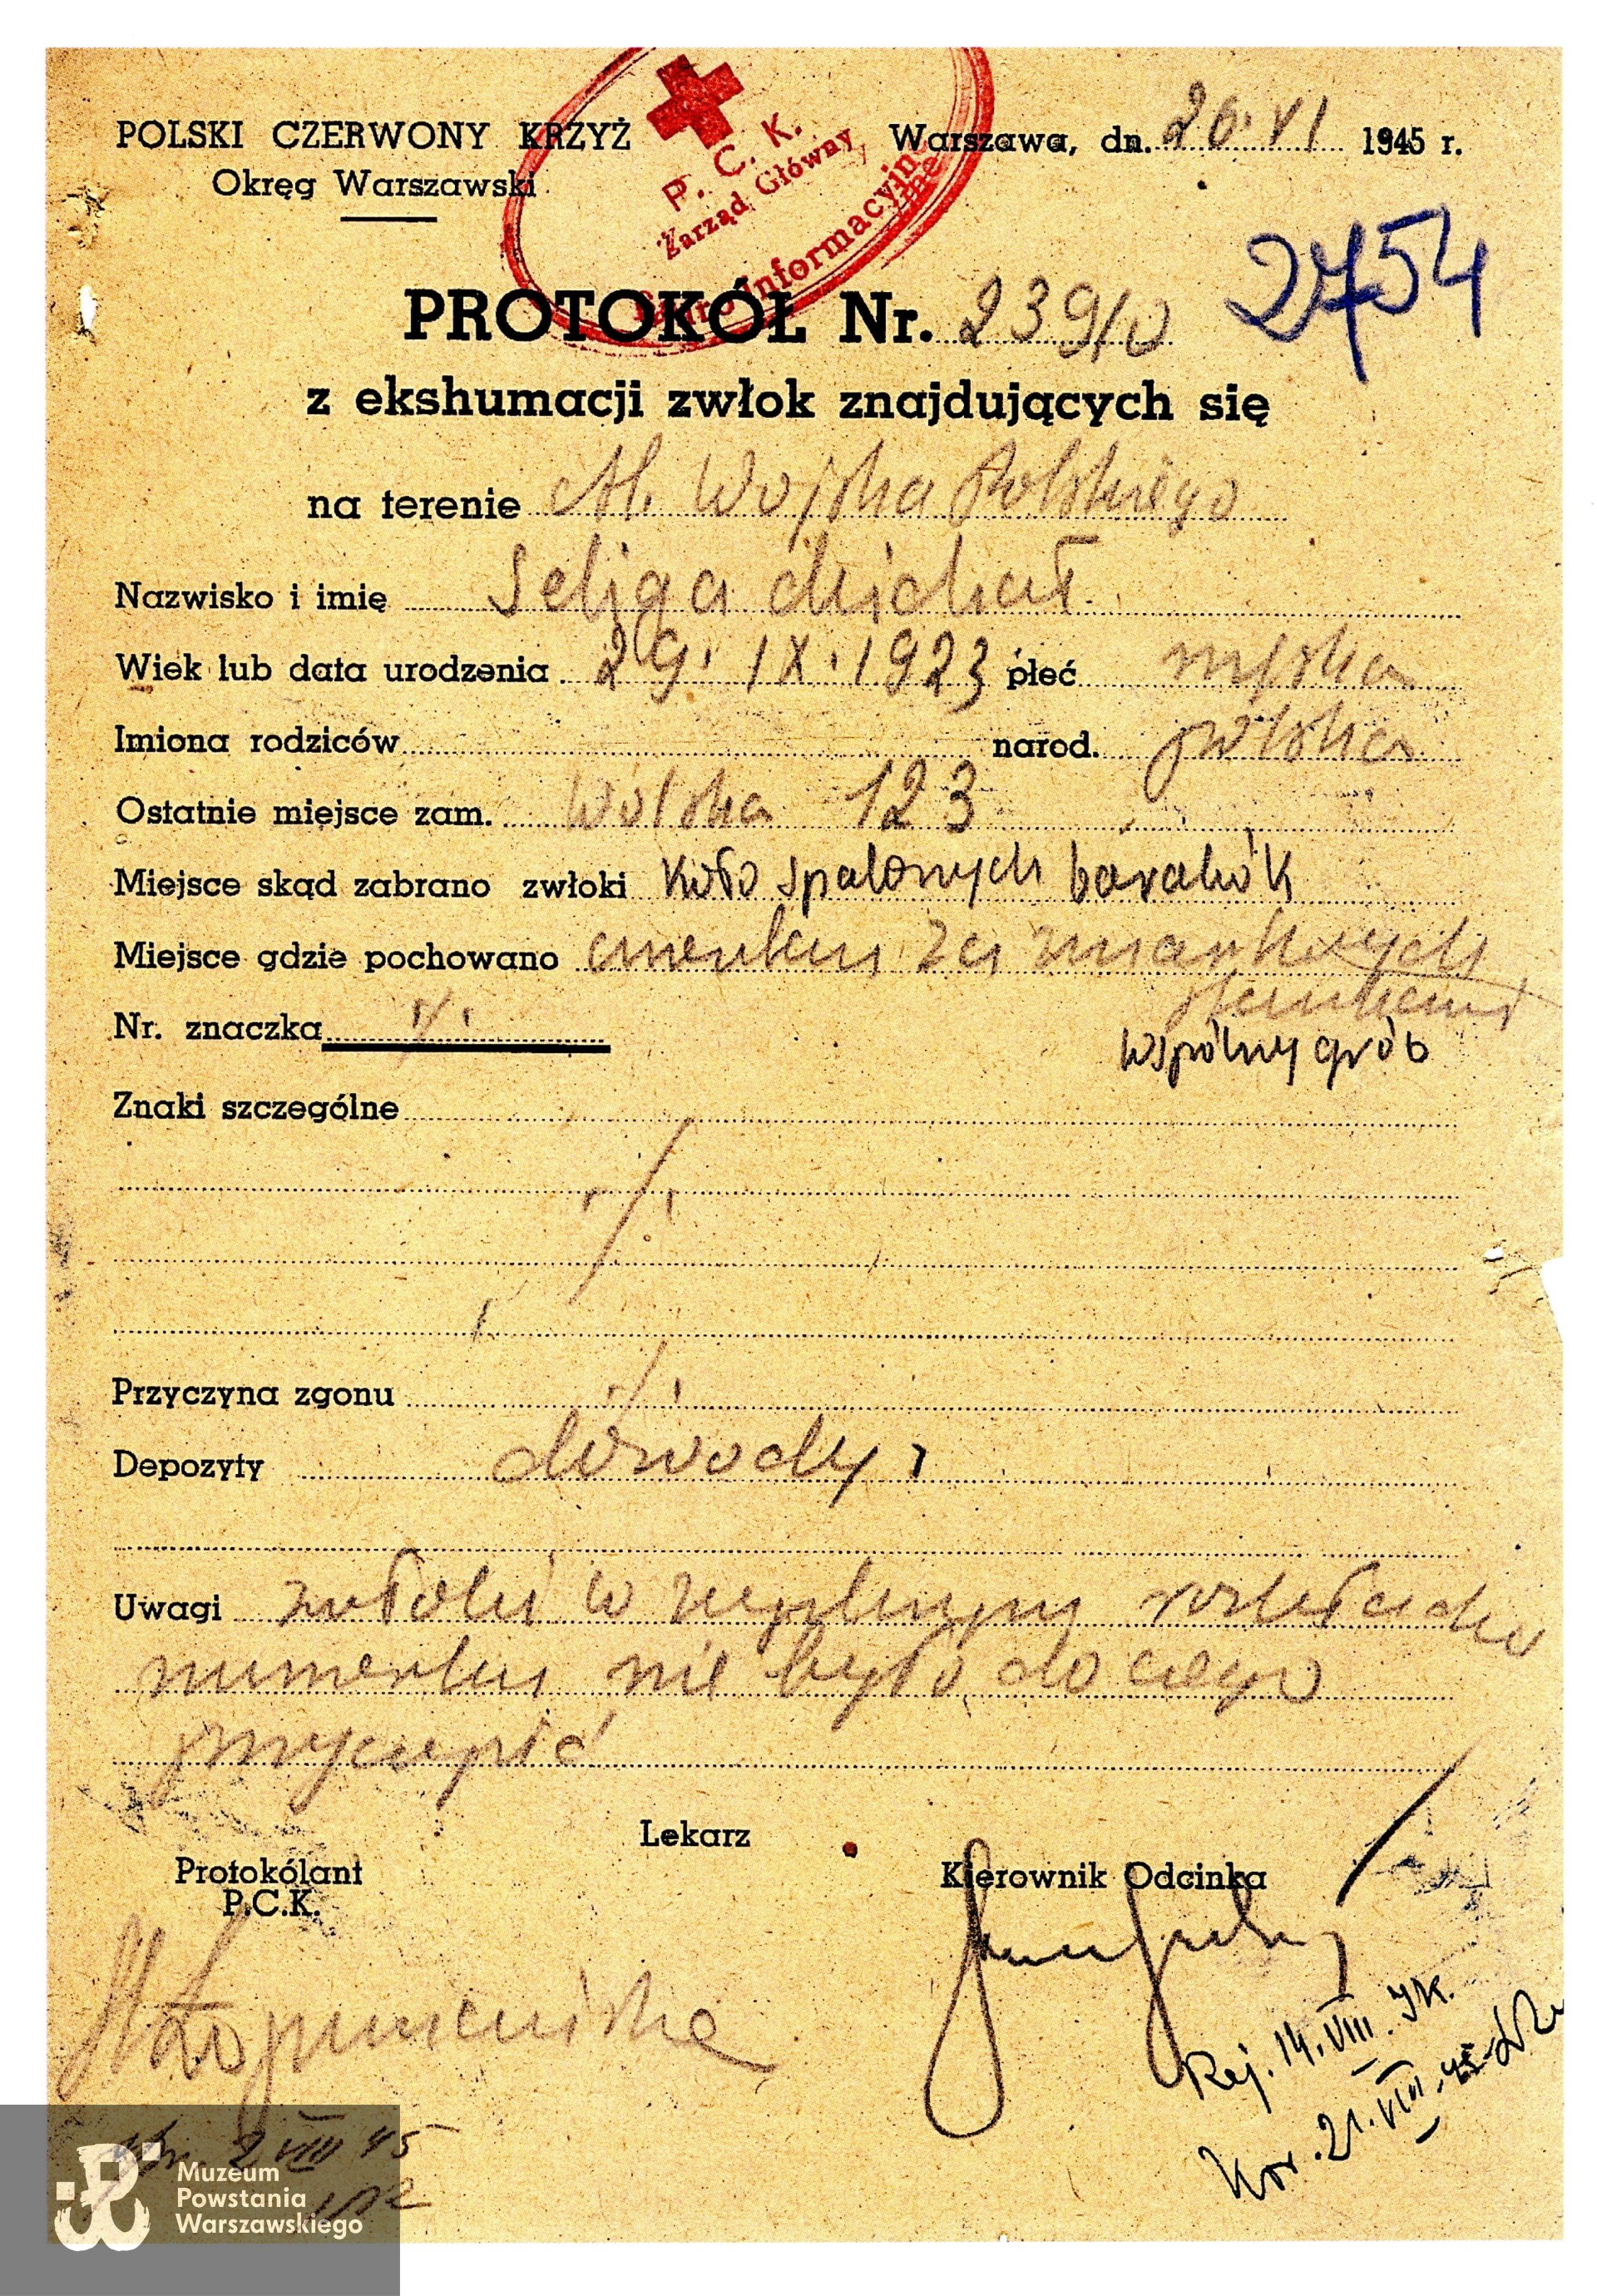 P. C. K.
Zarząd Główny
Biuro Informacyjne
POLSKI CZERWONY KRZYŻ
Okręg Warszawski
Warszawa, dn. 20.VI 1945 r.
2754
PROTOKÓŁ Nr. 239/0
z ekshumacji zwłok znajdujących się
na terenie Al. Wojska Polskiego
Nazwisko i imię Seliga Michał
Wiek lub data urodzenia 29.IX.1923 płeć męska
Imiona rodziców narod. polska
Ostatnie miejsce zam. Wolska 123
Miejsce skąd zabrano zwłoki koło spalonych baraków
Miejsce gdzie pochowano cmentarz
Nr. znaczka
wspólny grób
Znaki szczególne
Przyczyna zgonu
Depozyty dowody
Uwagi zwłoki w zupełnym rozkładzie
numerku nie było do czego
przyczepić
Lekarz
Protokólant
P.C.K.
Kierownik Odcinka
Rej. 14.VIII.
Kor. 21.VIII.45
2 VIII 45
Muzeum
Powstania
Warszawskiego